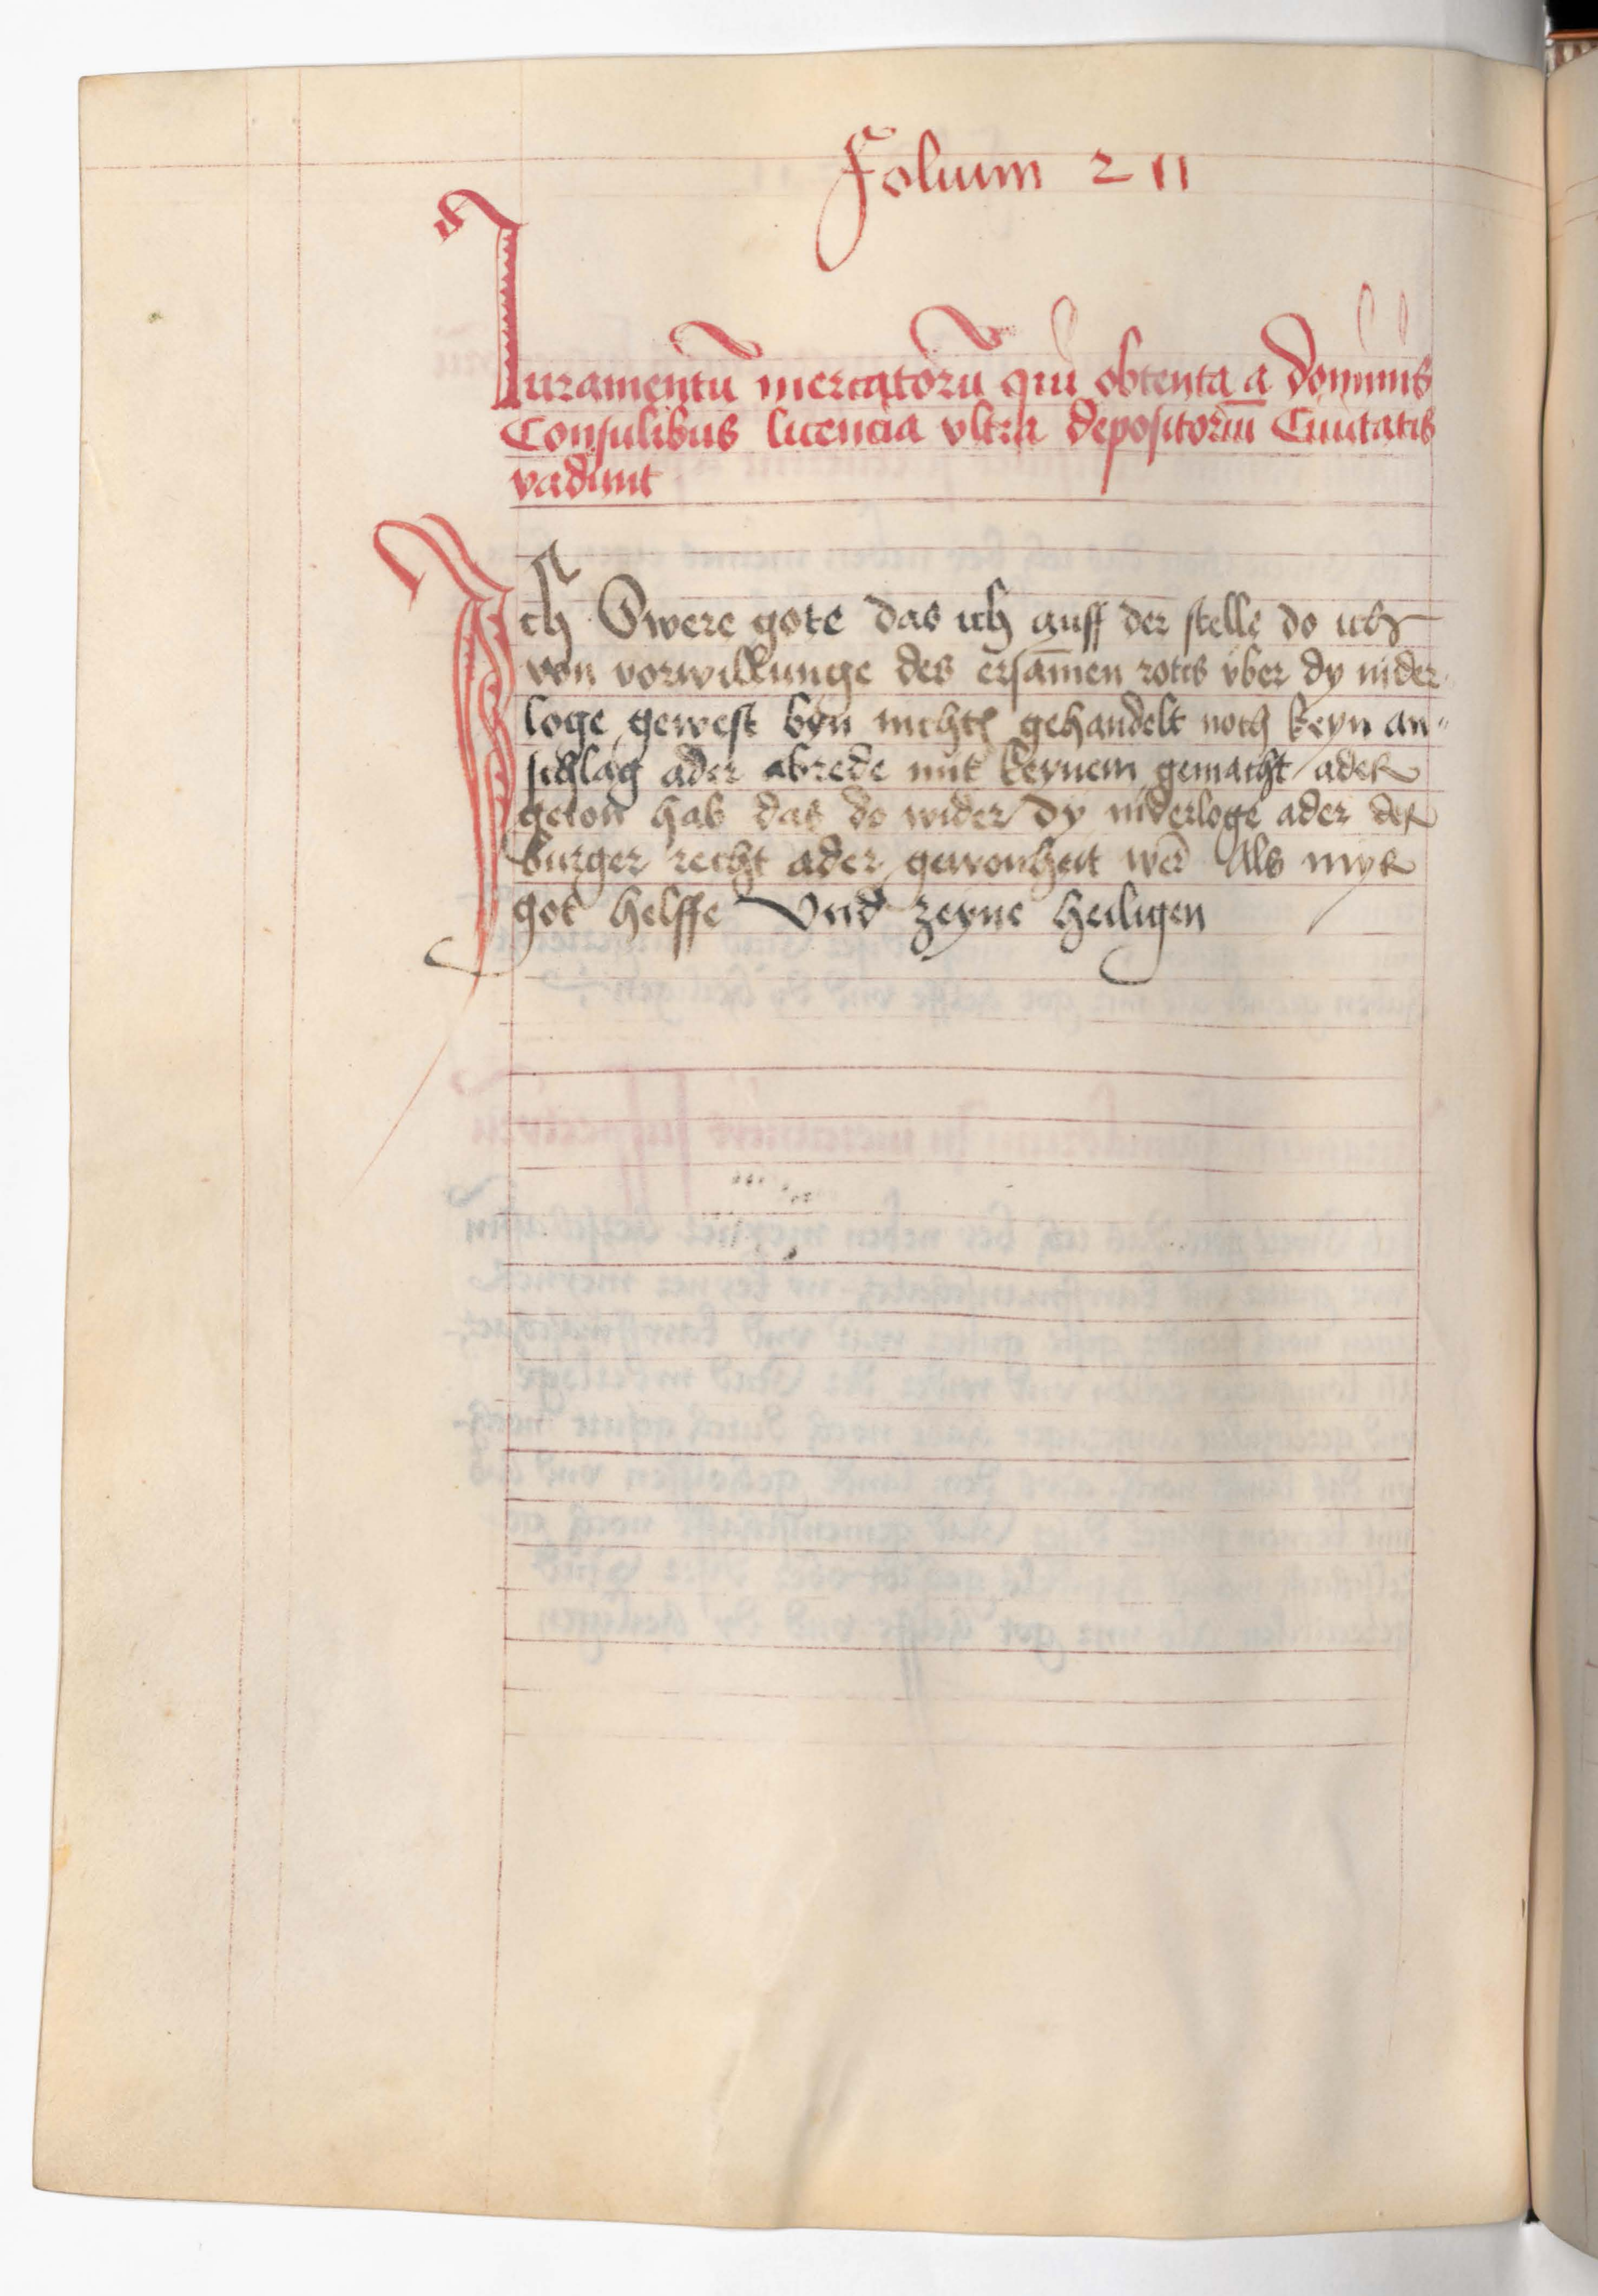 Folium 211
Iuramentū mercatorū qui obtenta a dominis
Consulibus licencia vltra depositoriū Ciuitatis
vadunt
Ich Swere gote das ich auff der stelle do ich
von vorwillunge des ersamen rotis vber dy nider
loge gewest byn nichts gehandelt noch keyn an-
schlag ader abrede mit keynem gemacht ader
geton hab das do wider dy niderloge ader der
burger recht ader gewonheit wer Als myr
got helffe Vnd zeyne heiligen